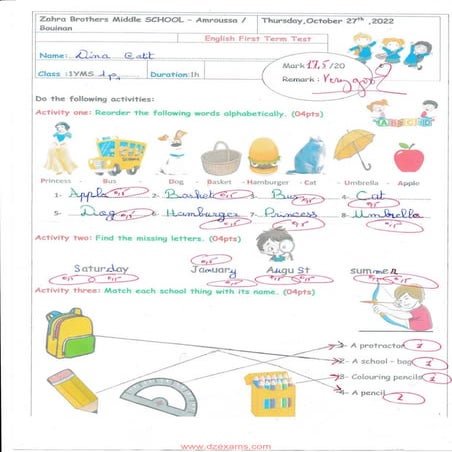 Zahra Brothers Middle SCHOOL - Amroussa / Bouinan
Thursday,October 27th ,2022
English First Term Test
Name: Dina
Mark 17,5/20
Class :1YMS
Duration:1h
Remark : Very good
Do the following activities:
Activity one: Reorder the following words alphabetically. (04pts)
SCHOOL BUS
ABCD
Princess - Bus - Dog - Basket - Hamburger - Cat - Umbrella - Apple
1- Apple 2- Basket 3- Bus 4- Cat
5- Dog 6- Hamburger 7- Princess 8- Umbrella
Activity two: Find the missing letters. (04pts)
Saturday January August summer
Activity three: Match each school thing with its name. (04pts)
1- A protractor 1
2- A school - bag 1
3- Colouring pencils 1
4- A pencil
www.dzexams.com